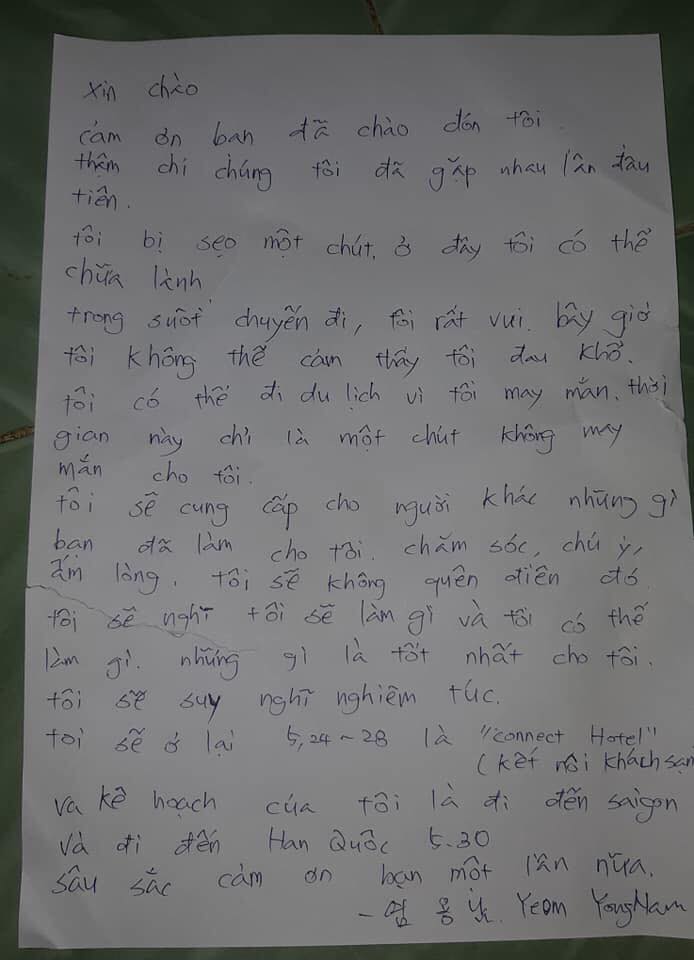 xin chào
cảm ơn bạn đã chào đón tôi.
thậm chí chúng tôi đã gặp nhau lần đầu
tiên.
tôi bị sẹo một chút. ở đây tôi có thể
chữa lành
trong suốt chuyến đi, tôi rất vui. bây giờ
tôi không thể cảm thấy tôi đau khổ.
tôi có thể đi du lịch vì tôi may mắn. thời
gian này chỉ là một chút không may
mắn cho tôi.
tôi sẽ cung cấp cho người khác những gì
bạn đã làm cho tôi. chăm sóc, chú ý,
ấm lòng. tôi sẽ không quên điên đó
tôi sẽ nghĩ tôi sẽ làm gì và tôi có thể
làm gì. những gì là tốt nhất cho tôi.
tôi sẽ suy nghĩ nghiêm túc.
toi sẽ ở lại 5,24~28 là "connect Hotel"
(kết nối khách sạn
va kế hoạch của tôi là đi đến saigon
và đi đến Han Quốc 5.30
sâu sắc cảm ơn bạn một lần nữa.
- 염용 Yeom YongNam